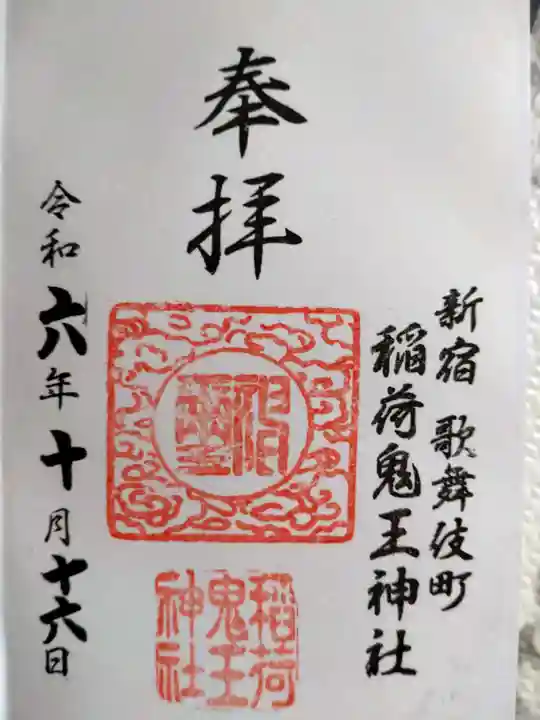 奉拝
新宿 歌舞伎町
稲荷鬼王神社
稲荷
鬼王
神社
令和六年十月十六日